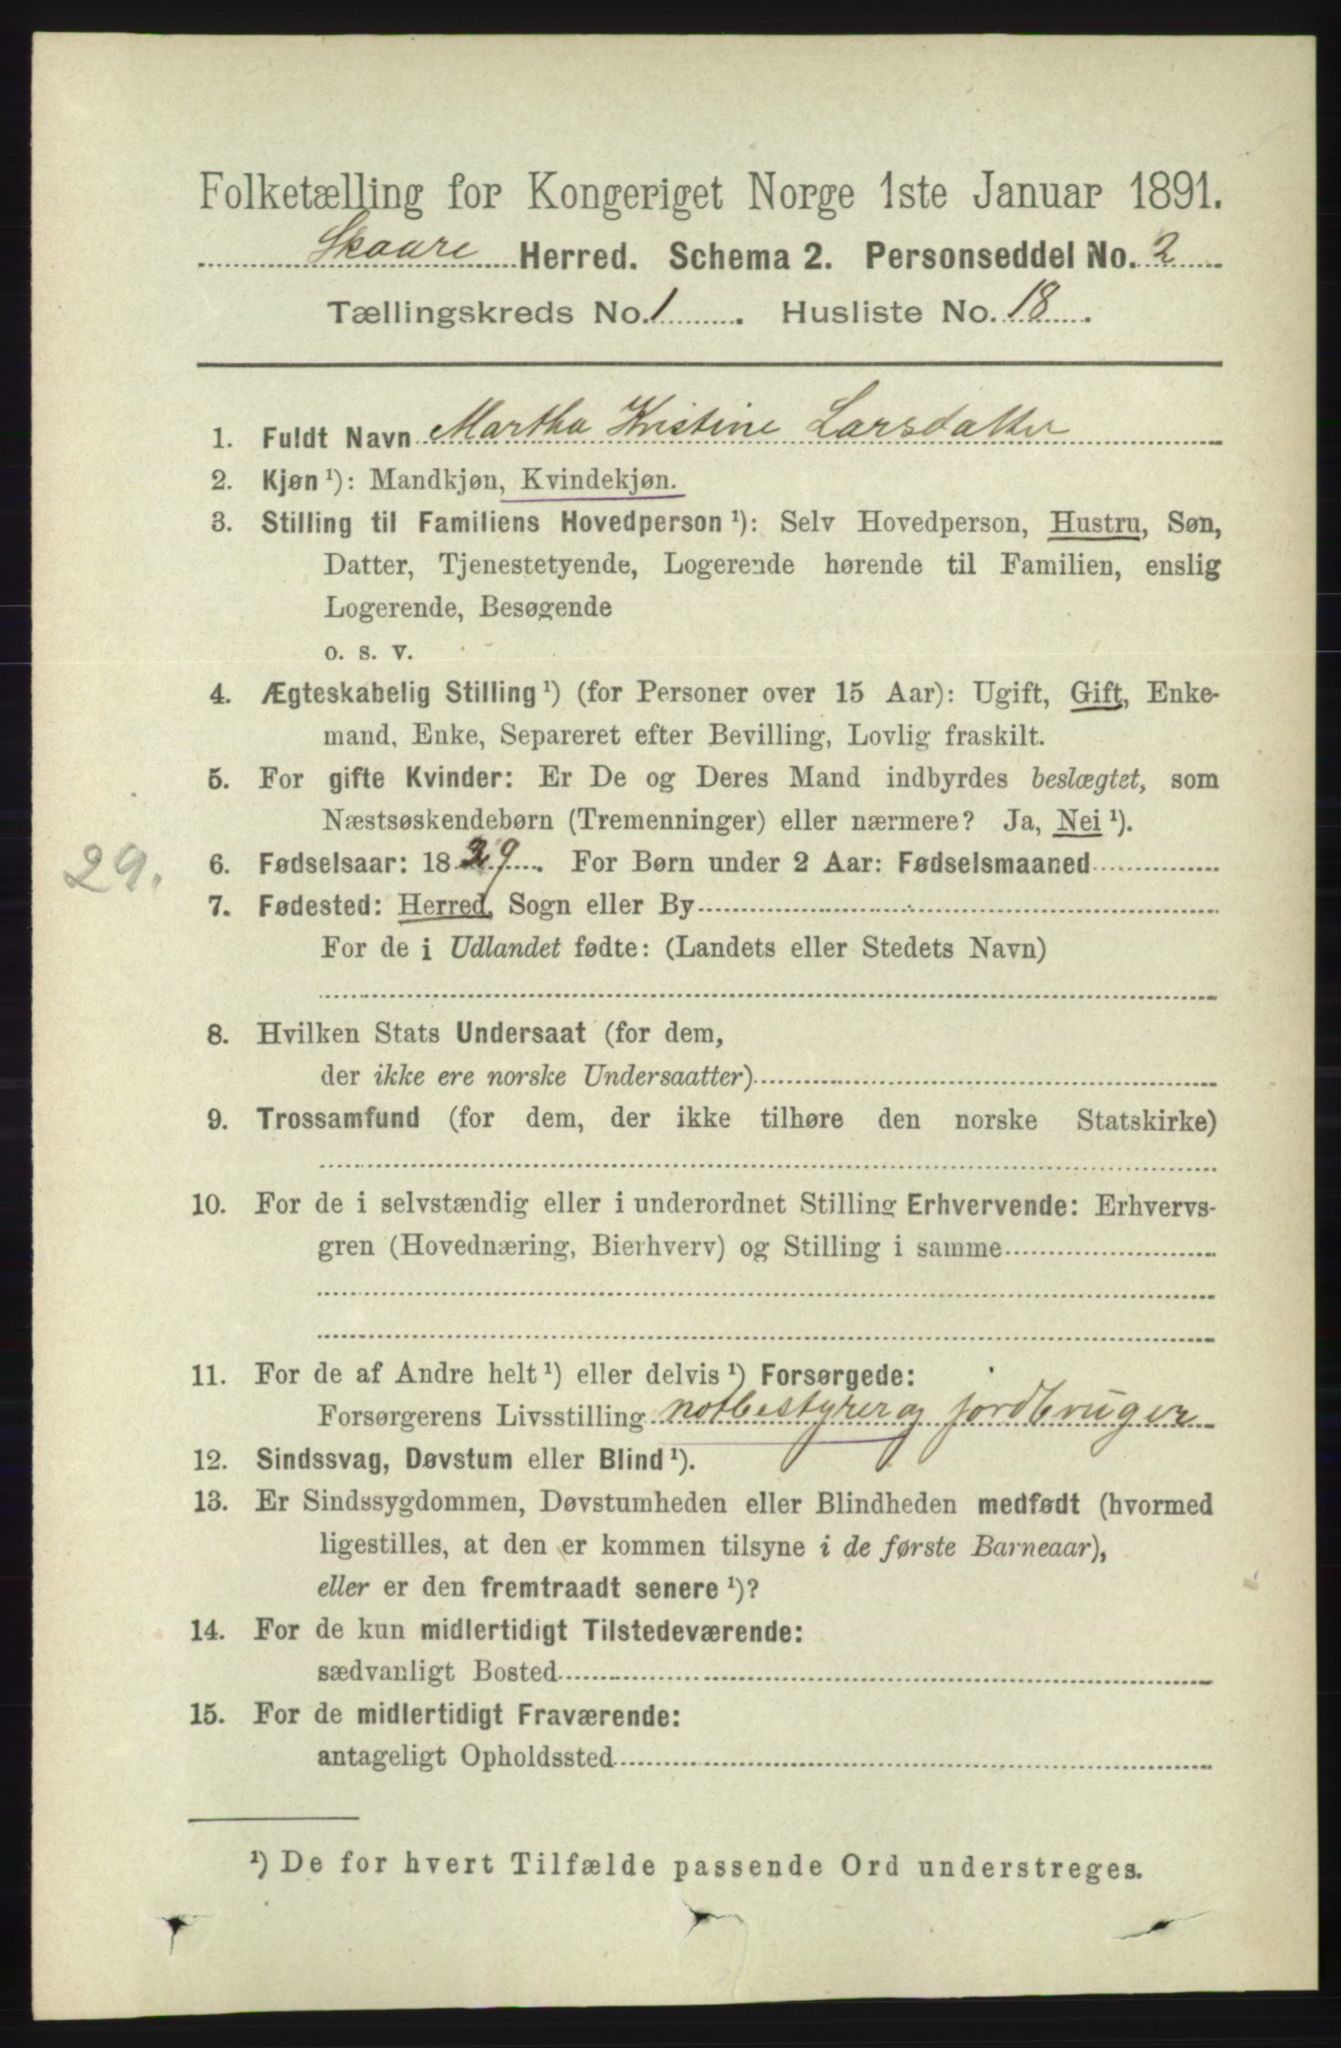 Folketælling for Kongeriget Norge 1ste Januar 1891.
Skaare Herred. Schema 2. Personseddel No. 2
Tællingskreds No. 1. Husliste No. 18.
1. Fuldt Navn Martha Kristine Larsdatter
2. Kjøn ¹): Mandkjøn, Kvindekjøn.
3. Stilling til Familiens Hovedperson ¹): Selv Hovedperson, Hustru, Søn,
Datter, Tjenestetyende, Logerende hørende til Familien, enslig
Logerende, Besøgende
o. s. v.
4. Ægteskabelig Stilling ¹) (for Personer over 15 Aar): Ugift, Gift, Enke-
mand, Enke, Separeret efter Bevilling, Lovlig fraskilt.
5. For gifte Kvinder: Er De og Deres Mand indbyrdes beslægtet, som
Næstsøskendebørn (Tremenninger) eller nærmere? Ja, Nei ¹).
29.
6. Fødselsaar: 1829. For Børn under 2 Aar: Fødselsmaaned
7. Fødested: Herred, Sogn eller By
For de i Udlandet fødte: (Landets eller Stedets Navn)
8. Hvilken Stats Undersaat (for dem,
der ikke ere norske Undersaatter)
9. Trossamfund (for dem, der ikke tilhøre den norske Statskirke)
10. For de i selvstændig eller i underordnet Stilling Erhvervende: Erhvervs-
gren (Hovednæring, Bierhverv) og Stilling i samme
11. For de af Andre helt ¹) eller delvis ¹) Forsørgede:
Forsørgerens Livsstilling notbestyrer og jordbruger
12. Sindssvag, Døvstum eller Blind ¹).
13. Er Sindssygdommen, Døvstumheden eller Blindheden medfødt (hvormed
ligestilles, at den er kommen tilsyne i de første Barneaar),
eller er den fremtraadt senere ¹)?
14. For de kun midlertidigt Tilstedeværende:
sædvanligt Bosted
15. For de midlertidigt Fraværende:
antageligt Opholdssted
¹) De for hvert Tilfælde passende Ord understreges.